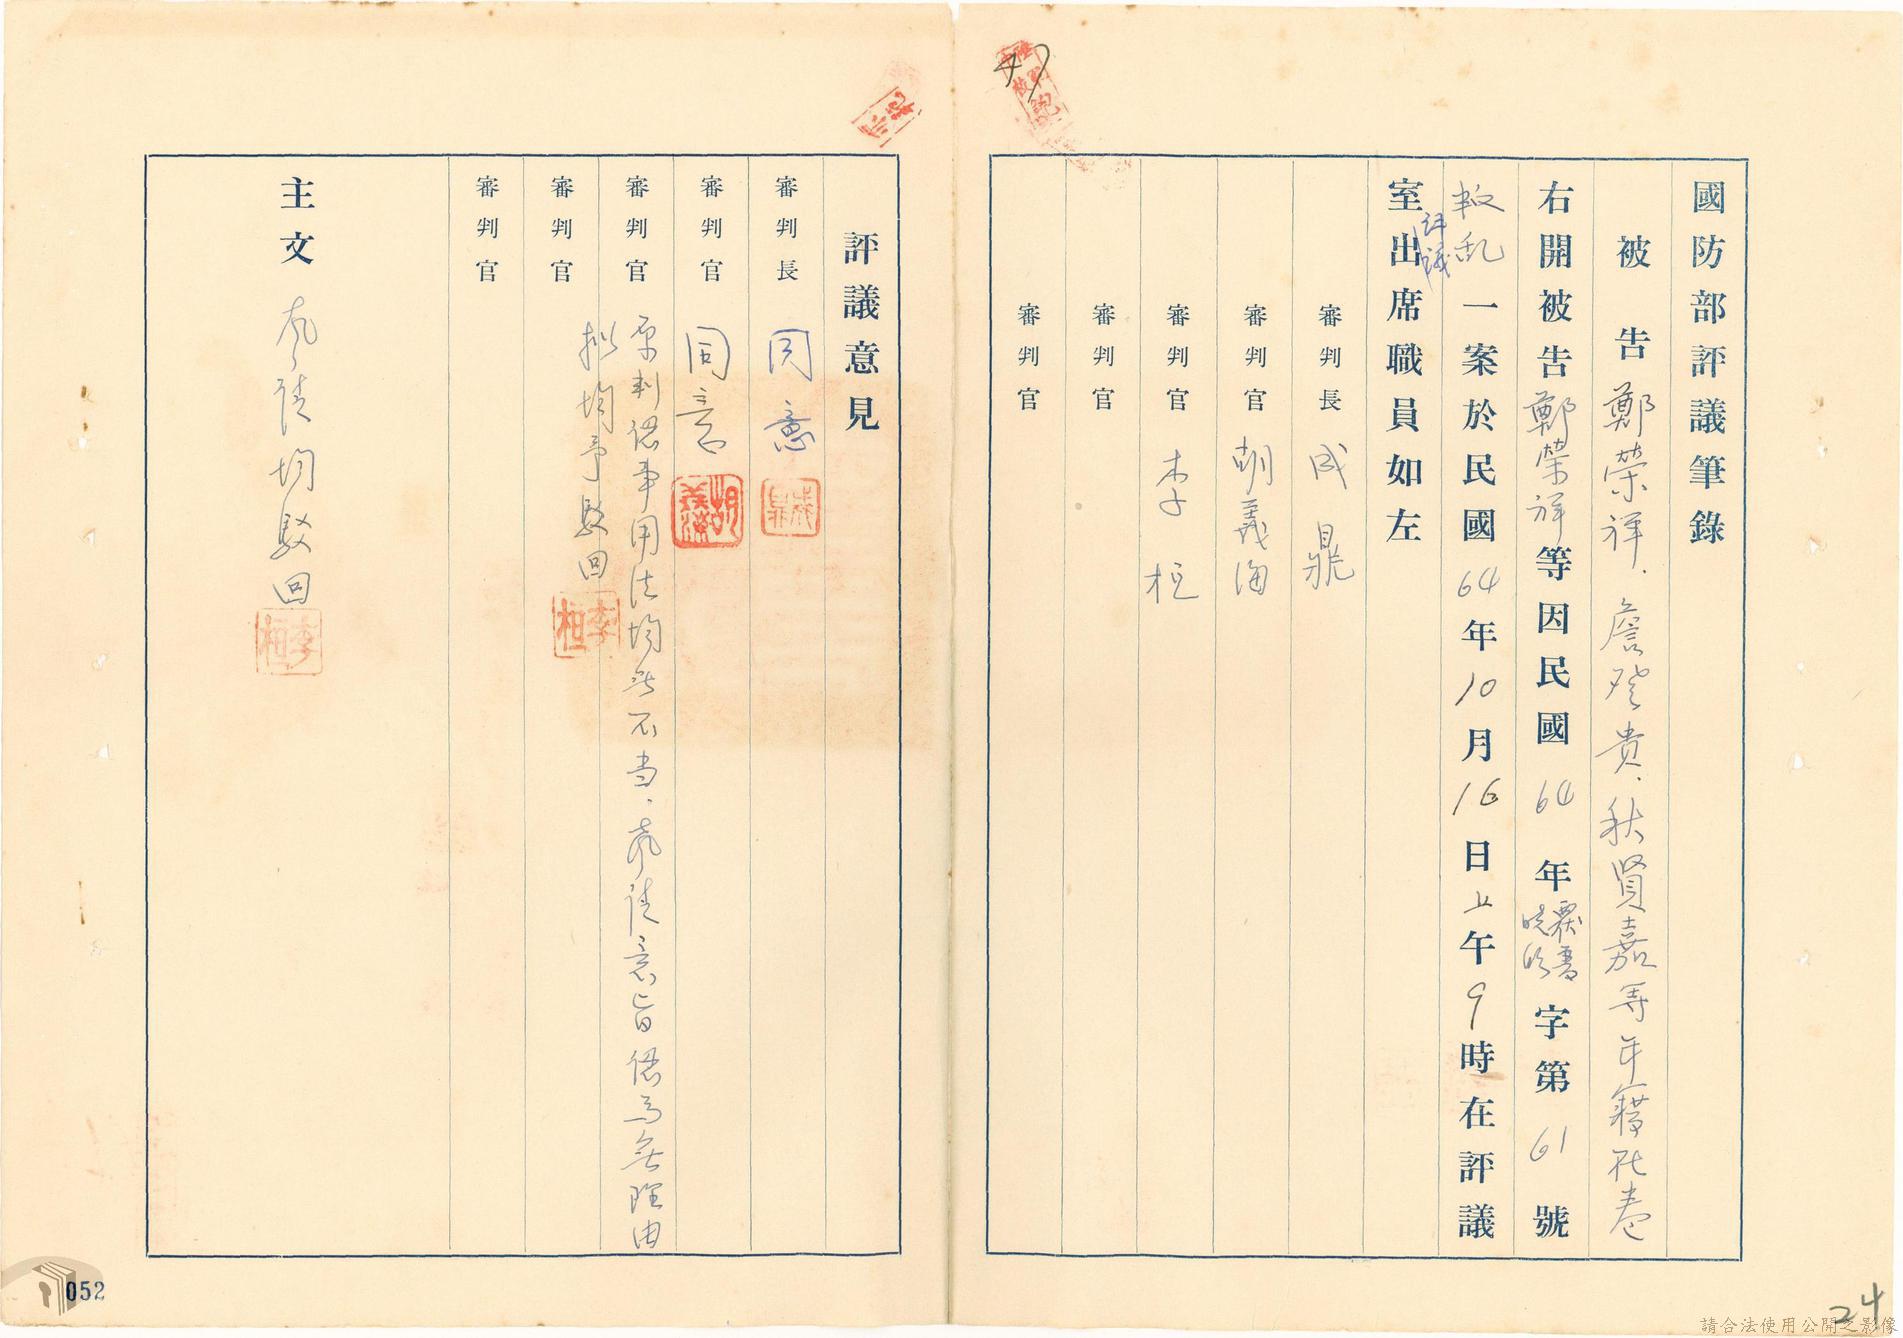 國防部評議筆錄
被告 鄭榮祥、詹登貴、秋賢嘉等年籍在卷
右開被告鄭榮祥等因民國64年覆普曉欣字第61號
叛乱一案於民國64年10月16日上午9時在評議
評議
室出席職員如左
審判長 成鼎
審判官 胡義海
審判官 李桓
審判官
審判官
評議意見
審判長 同意
審判官 同意
審判官 原判認事用法均無不当、声請意旨認為無理由
拟均予駁回
審判官
審判官
主文 声請均駁回
47
24
052
請合法使用公開之影像